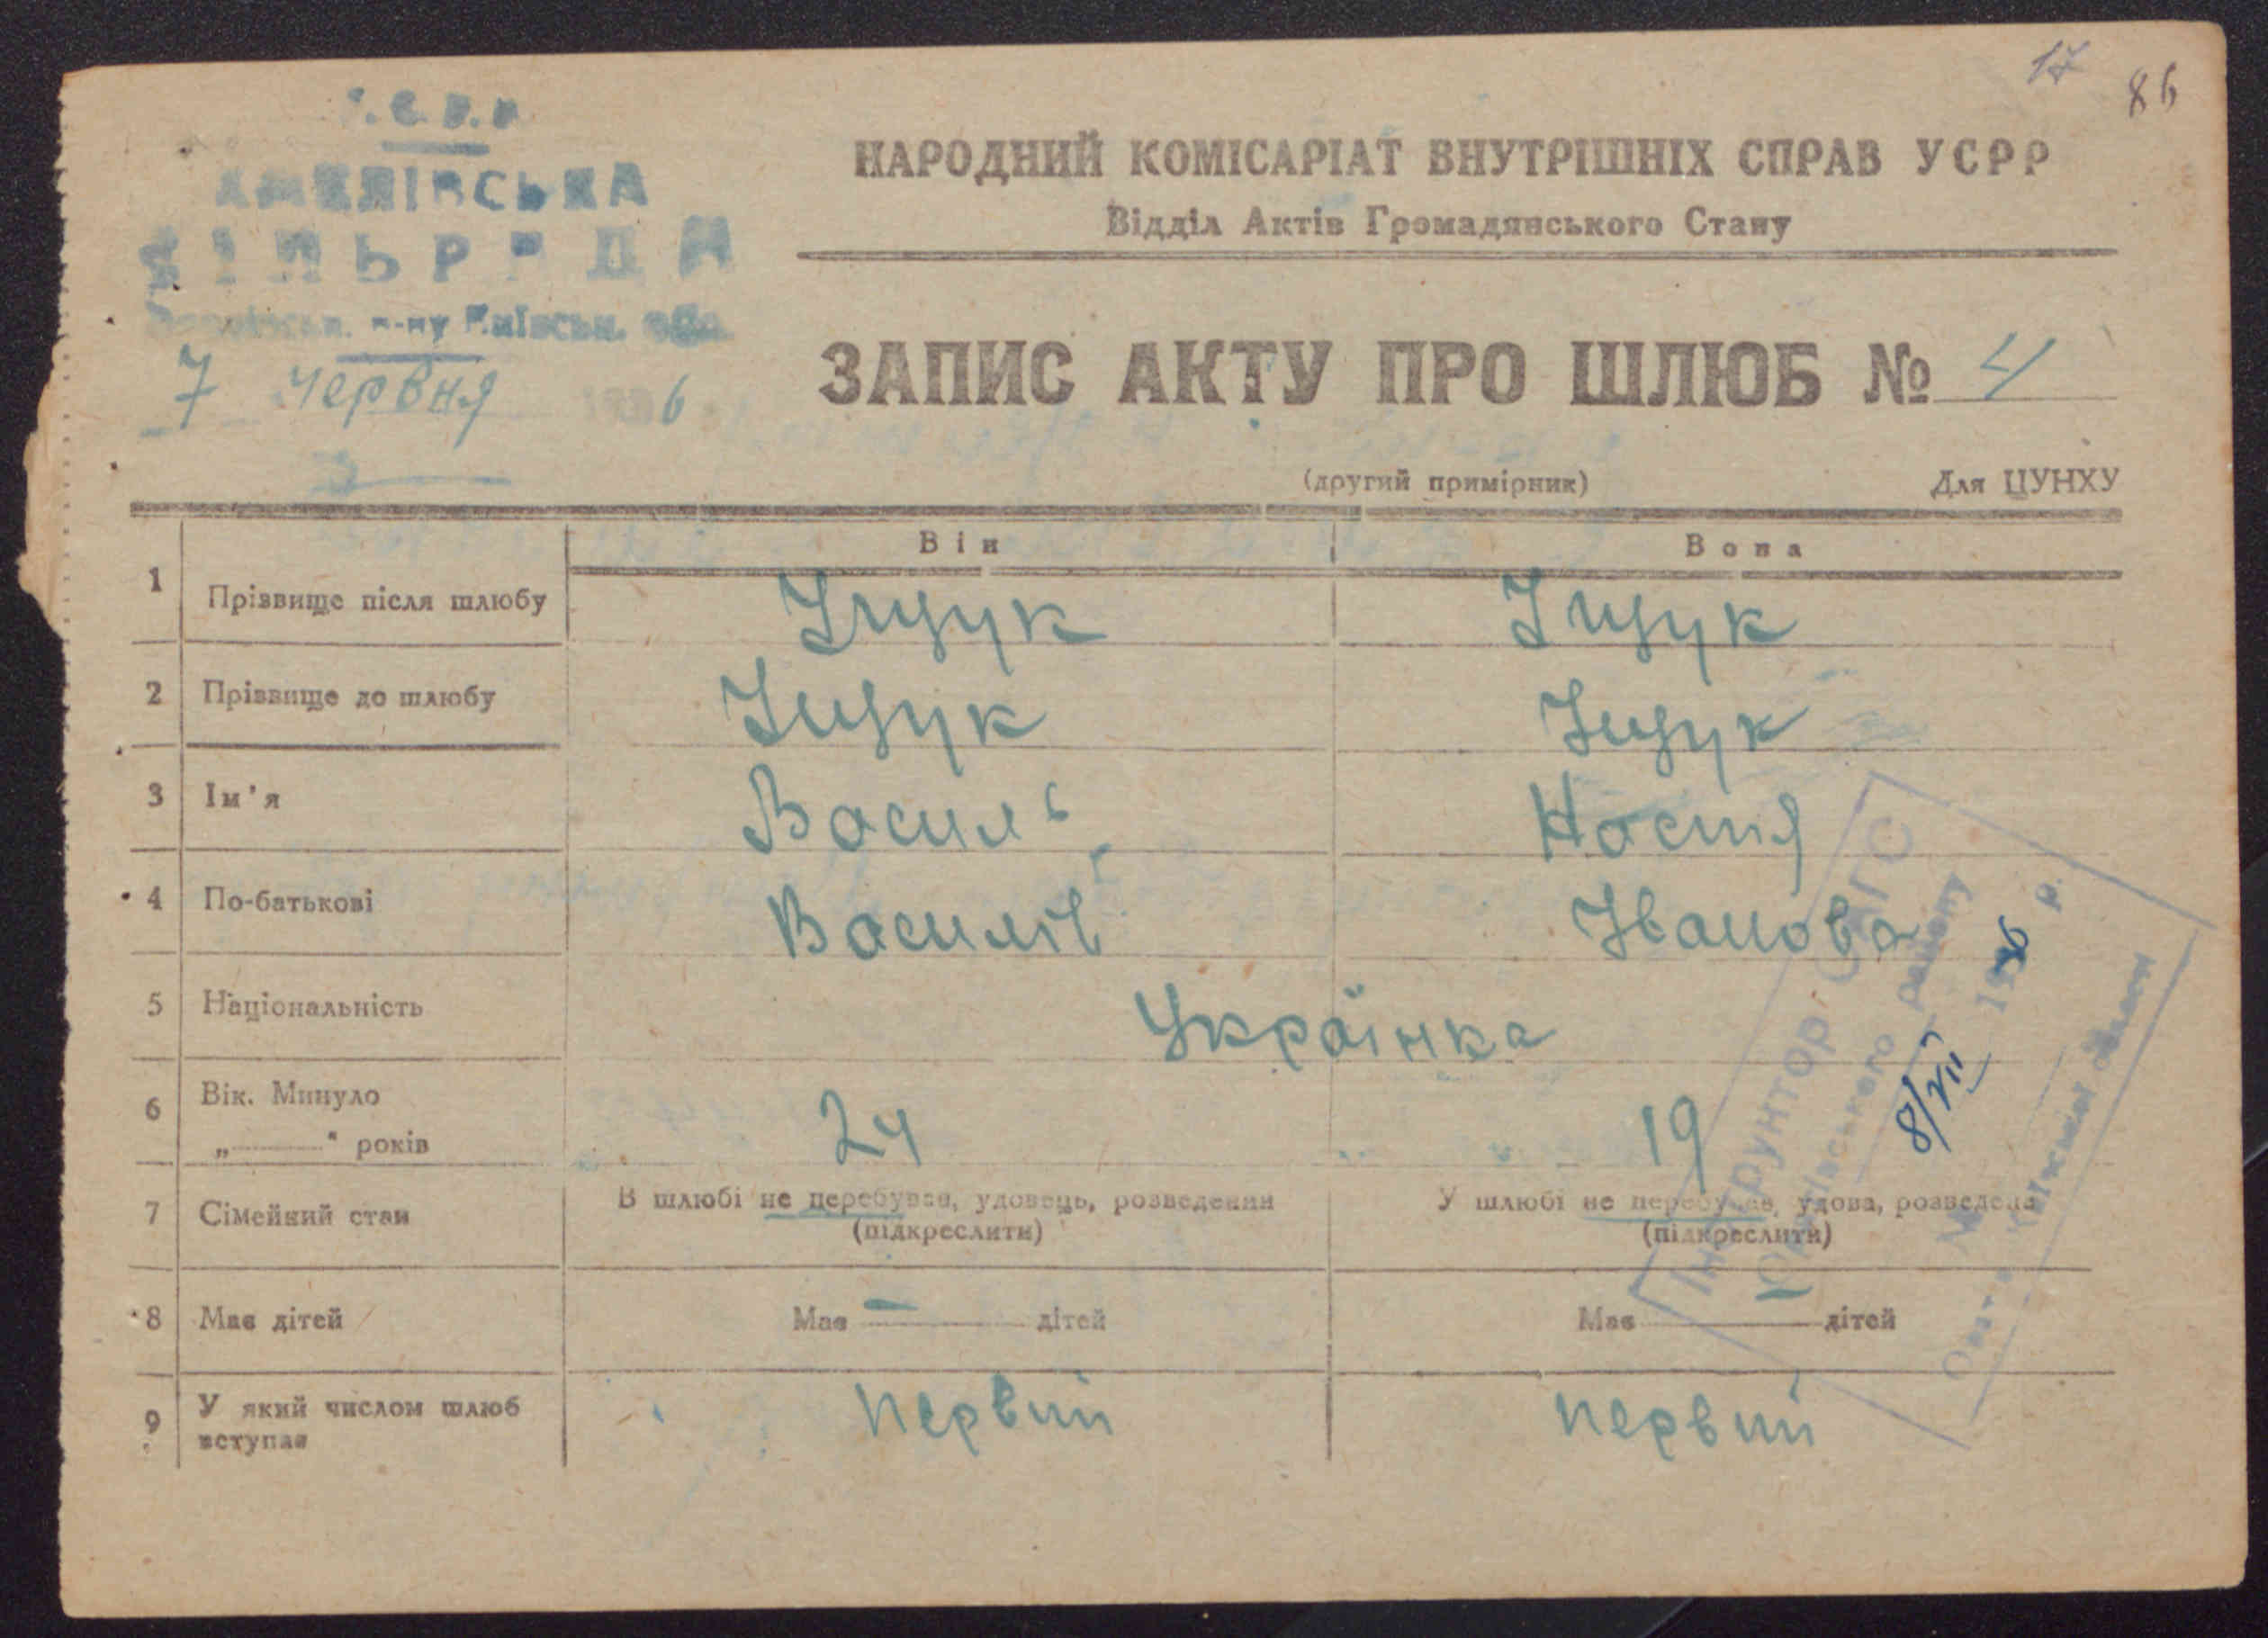 17
86
НАРОДНИЙ КОМІСАРІАТ ВНУТРІШНІХ СПРАВ УСРР
Відділ Актів Громадянського Стану
СІЛЬРАДА
р-ну Київськ. обл.
7 червня 1936
ЗАПИС АКТУ ПРО ШЛЮБ № 4
(другий примірник) Для ЦУНХУ
Він Вона
1 Прізвище після шлюбу Іщук Іщук
2 Прізвище до шлюбу Іщук Іщук
3 Ім'я Василь Настя
4 По-батькові Василів Іванова
5 Національність Українка
6 Вік. Минуло
„ " років 24 19
7 Сімейний стан В шлюбі не перебував, удовець, розведений У шлюбі не перебував, удова, розведена
(підкреслити) (підкреслити)
8 Має дітей Має — дітей Має — дітей
9 У який числом шлюб
вступає первий первий
Інструктор ЗАГС
району
8/VII 1936 р.
Київської області